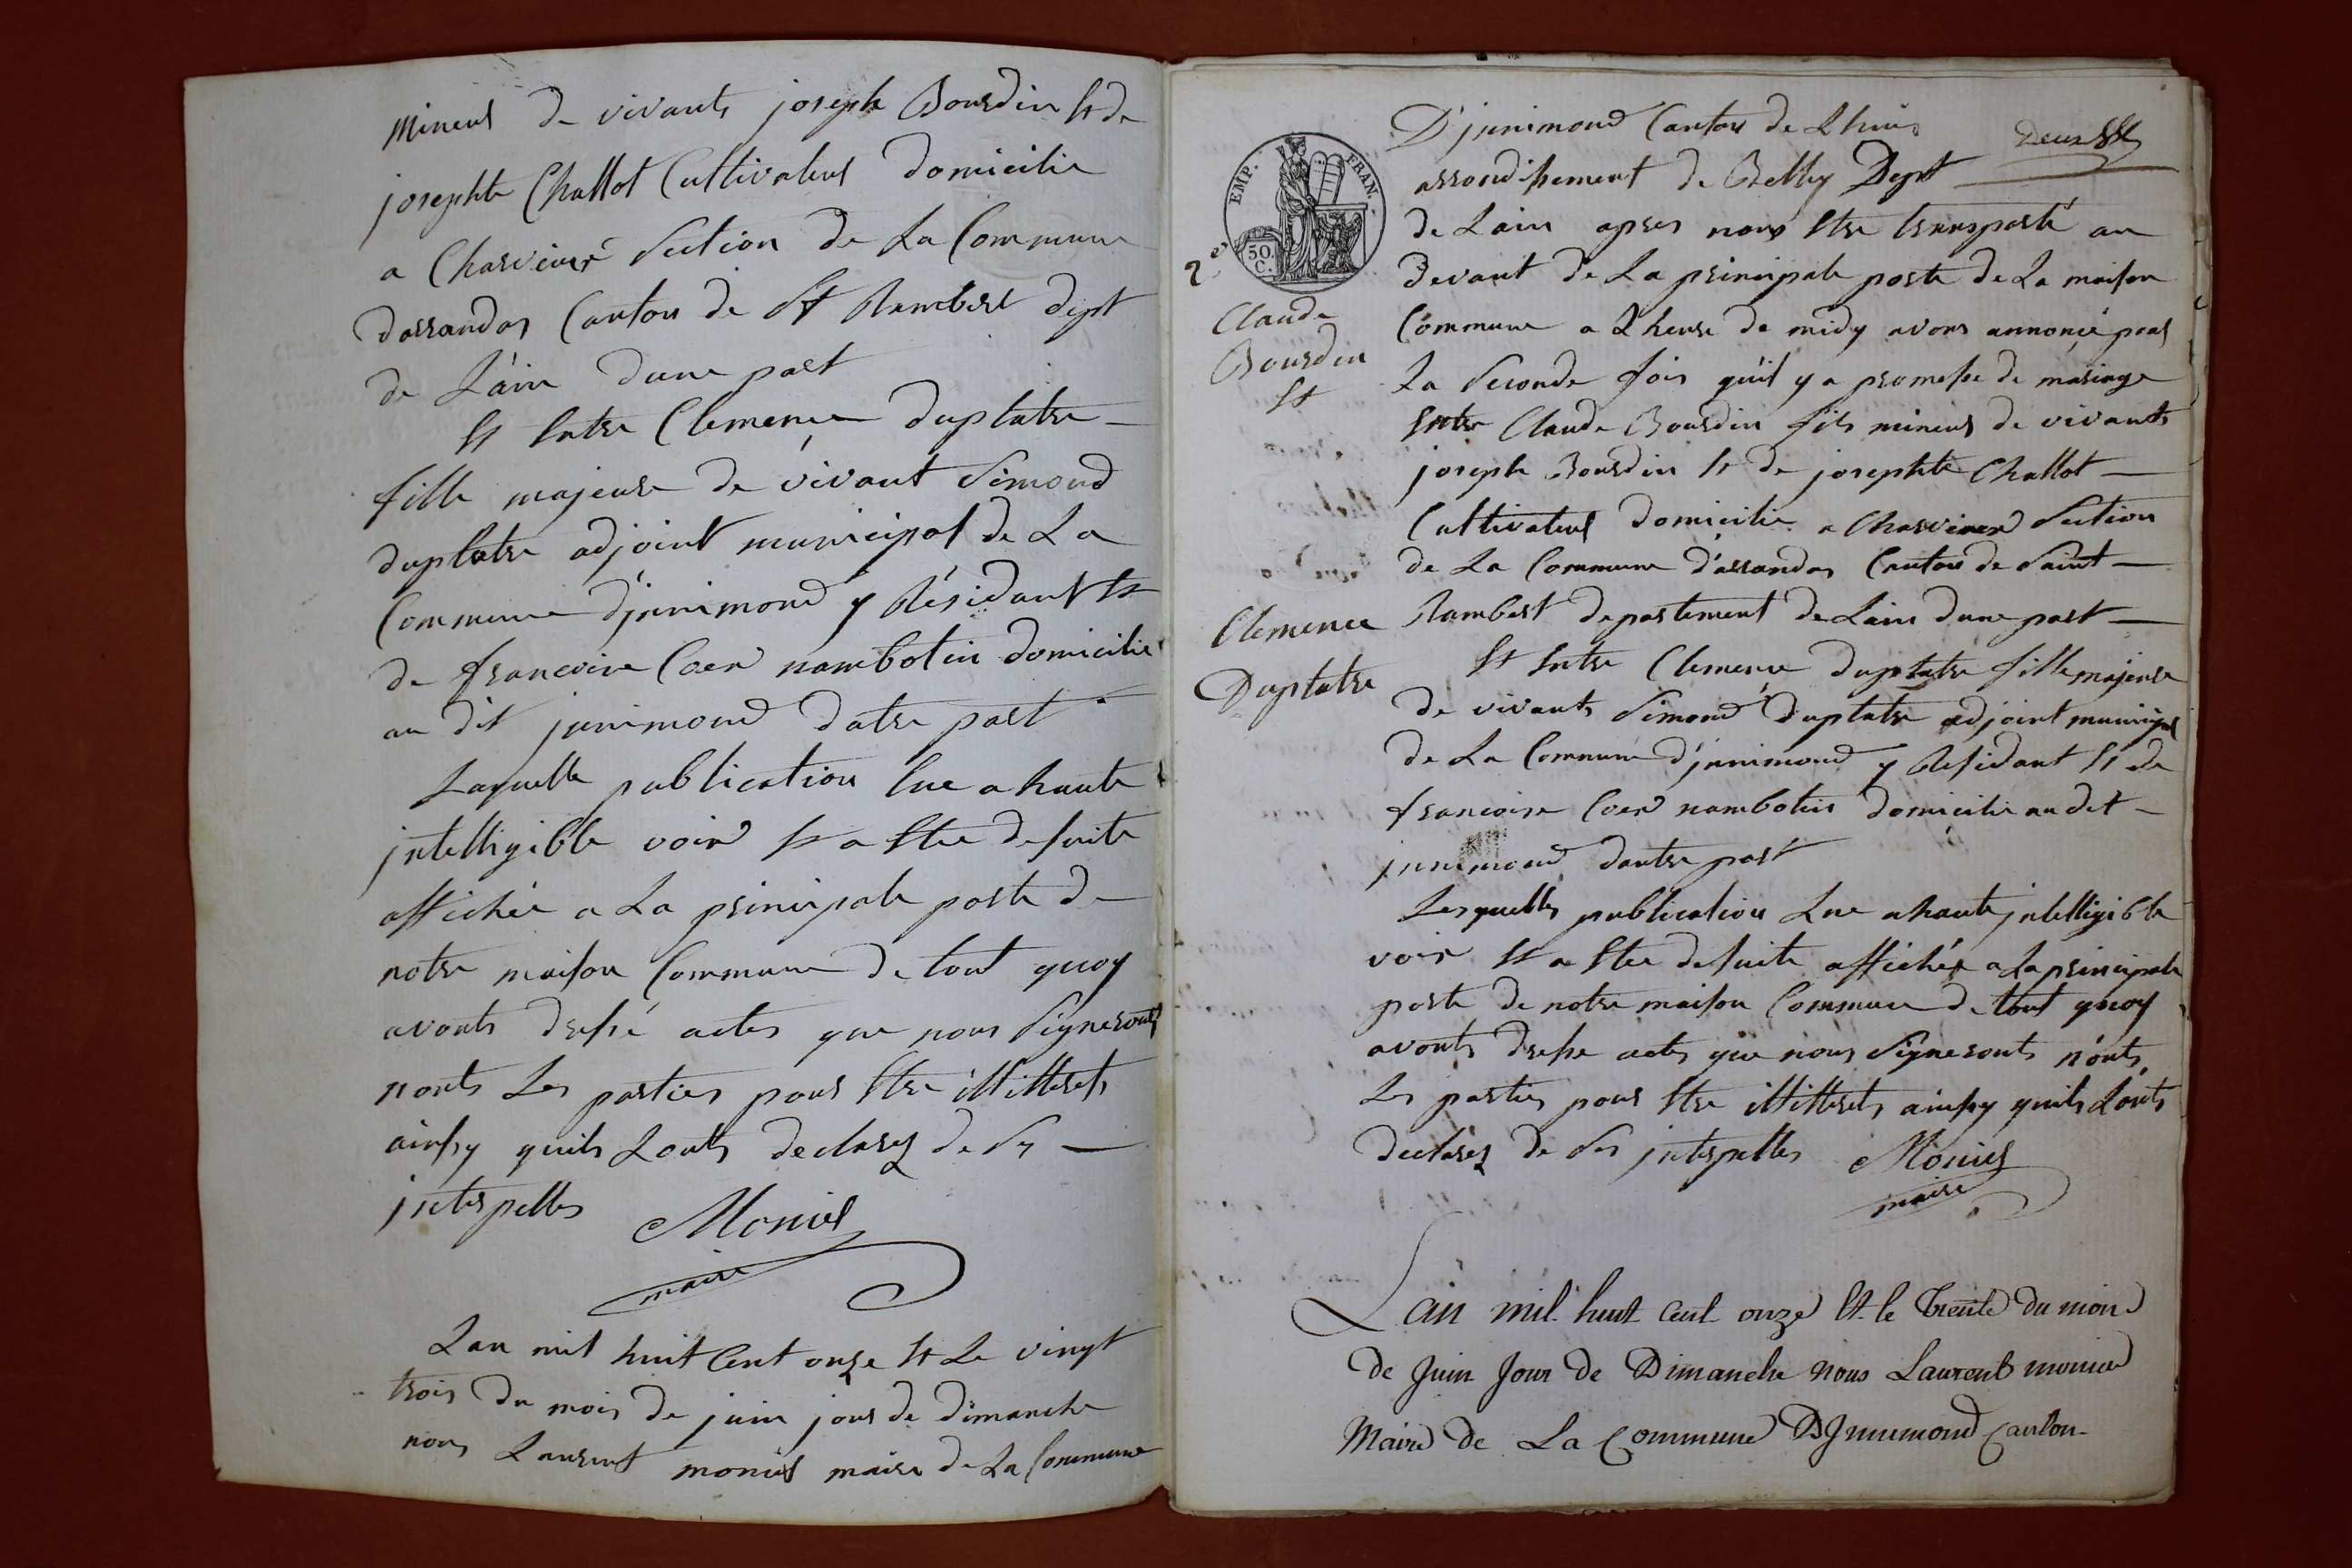 mineur de vivants joseph Bourdin Et de
josephte Challot Cultivateur domicilie
a Charvieux Section de La Commune
darrandas Canton de St Rambert dept
de L'ain dune part
Et Entre Clemence duplatre
fille majeure de vivant Simond
duplatre adjoint municipal de La
Commune d'jnnimond y Résidant Et
de francoise Coer nambotin domicilie
au dit jnnimond datre part
Laquelle publication lue a haute
jntelligible voix Et a Etee desuite
affichée a La principale porte de
notre maison Commune de tout quoy
avonts dressé actes que nous Signeronts
nonts Les parties pour Etre illitterets
ainsy quils Lonts declarez de
jnterpelles Monier
maire
Lan mil huit Cent onze Et Le vingt
trois du mois de juin jour de dimanche
nous Laurent monier maire de La Commune
D'jnnimond Canton de Lhuis
arrondissement de Belley Dept
de Lain apres nous Etre transporté au
devant de La principale porte de La maison
Commune a Lheure de midy avons annoncé pour
La Seconde fois qu'il y a promesse de mariage
Entre Claude Bourdin fils mineur de vivants
joseph Bourdin Et de josephte Challot
Cultivateur domicilie a Charvieux Section
de La Commune d'arrandas Canton de Saint
Rambert departement de Lain dune part
Et Entre Clemence duplatre fille majeure
de vivants Simond duplatre adjoint municipal
de La Commune d'jnnimond y Residant Et de
francoise Coer nambotin domicilie au dit
jnnimond dautre part
Lesquelles publication Lue a haute jntelligible
voix Et a Etee desuite affichée a La principale
porte de notre maison Commune de tout quoy
avonts dresse actes que nous Signeronts n'onts
Les parties pour Etre illitterets ainsy quils Lonts
declarez de Ses jnterpelles Monier
maire
L'an mil huit cent onze Et le trente du mois
de Juin Jour de Dimanche nous Laurent monier
Maire de La Commune D'Jnnimond Canton
EMP. FRAN.
50
C.
2e
Claude
Bourdin
Et
Clemence
Duplatre